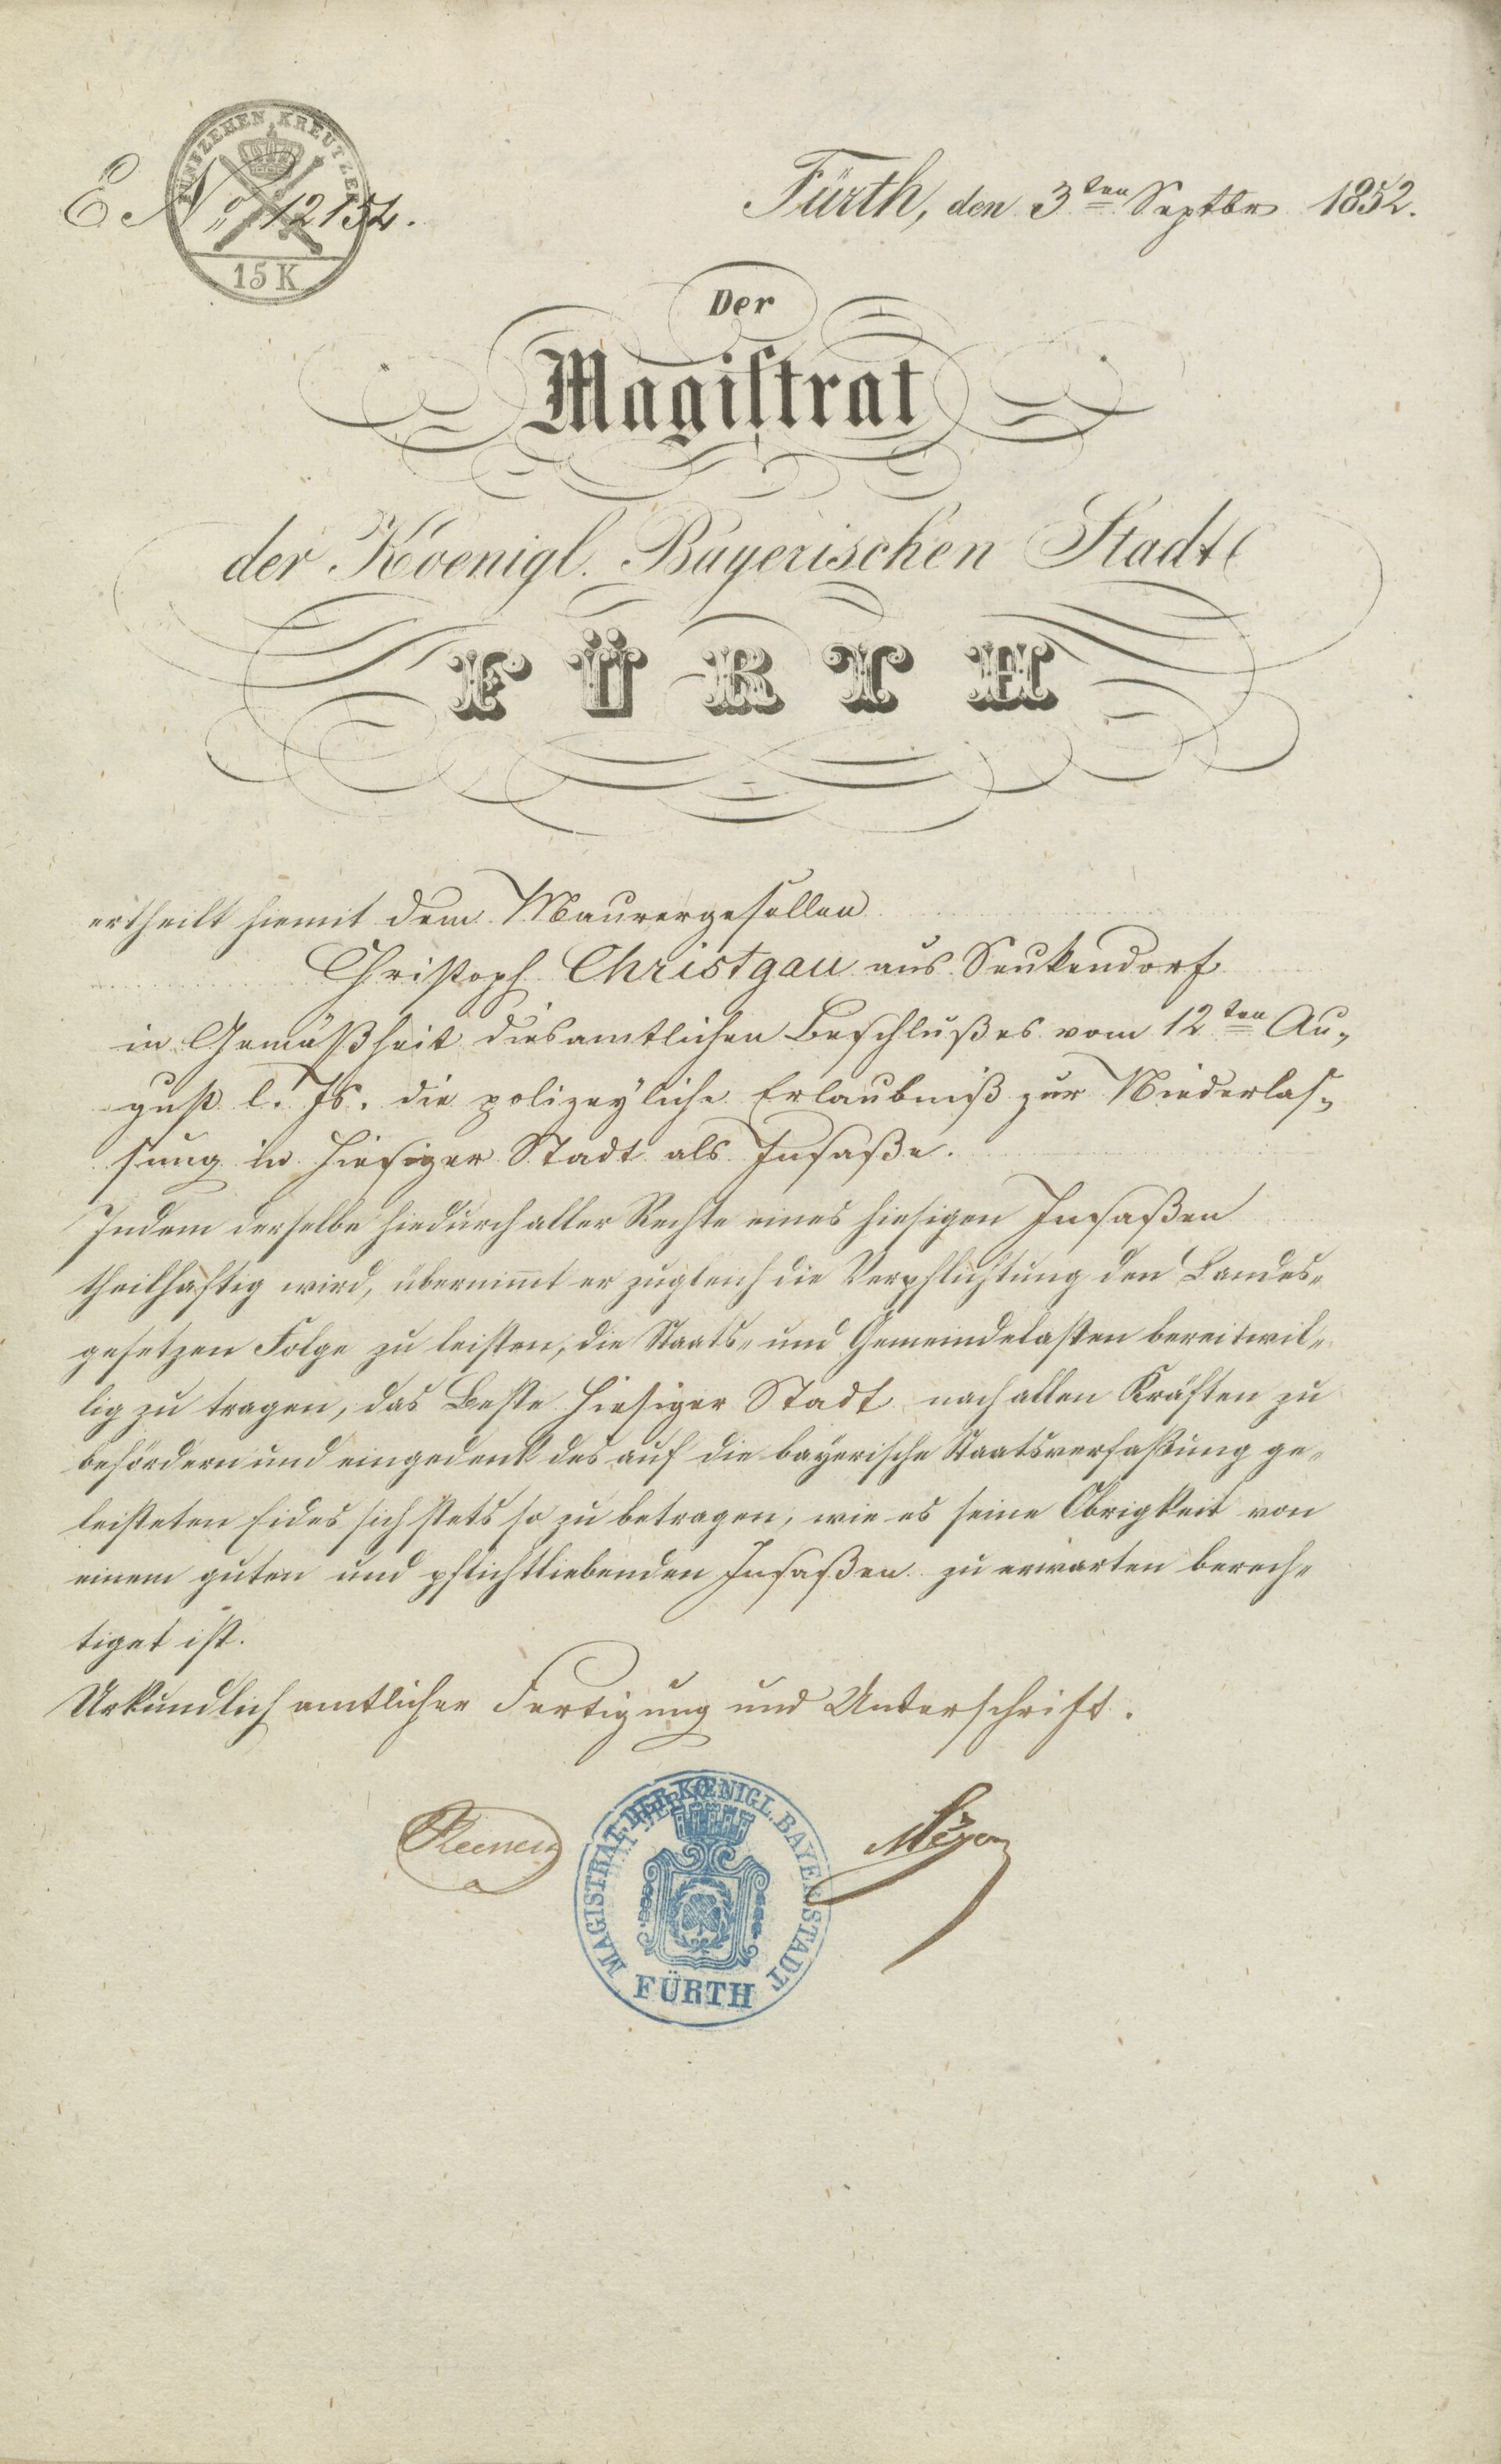 FÜNFZEHEN KREUTZER
15 K
E. No. 12154.
Fürth, den 3ten Septbr 1852.
Der
Magiſtrat
der Koenigl. Bayerischen Stadt
FÜRTH
ertheilt hiemit dem Maurergesellen
Christoph Christgau aus Seukendorf
in Gemäßheit diesamtlichen Beschlußes vom 12ten Au-
gust l. Js. die polizeyliche Erlaubniß zur Niederlas-
sung in hiesiger Stadt als Insaße.
Indem derselbe hiedurch aller Rechte eines hiesigen Insaßen
theilhaftig wird, übernimmt er zugleich die Verpflichtung den Landes-
gesetzen Folge zu leisten, die Staats- und Gemeindelasten bereitwil-
lig zu tragen, das Beste hiesiger Stadt nach allen Kräften zu
befördern und eingedenk des auf die bayerische Staatsverfaßung ge-
leisteten Eides sich stets so zu betragen, wie es seine Obrigkeit von
einem guten und pflichtliebenden Insaßen zu erwarten berech-
tiget ist.
Urkundlich amtlicher Fertigung und Unterschrift.
MAGISTRAT DER KŒNIGL. BAYER. STADT
FÜRTH